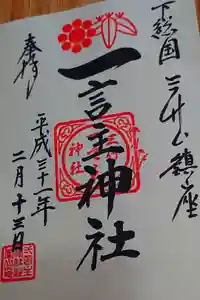 下総国三竹山鎮座
奉拝
一言主神社
平成三十一年
二月十三日